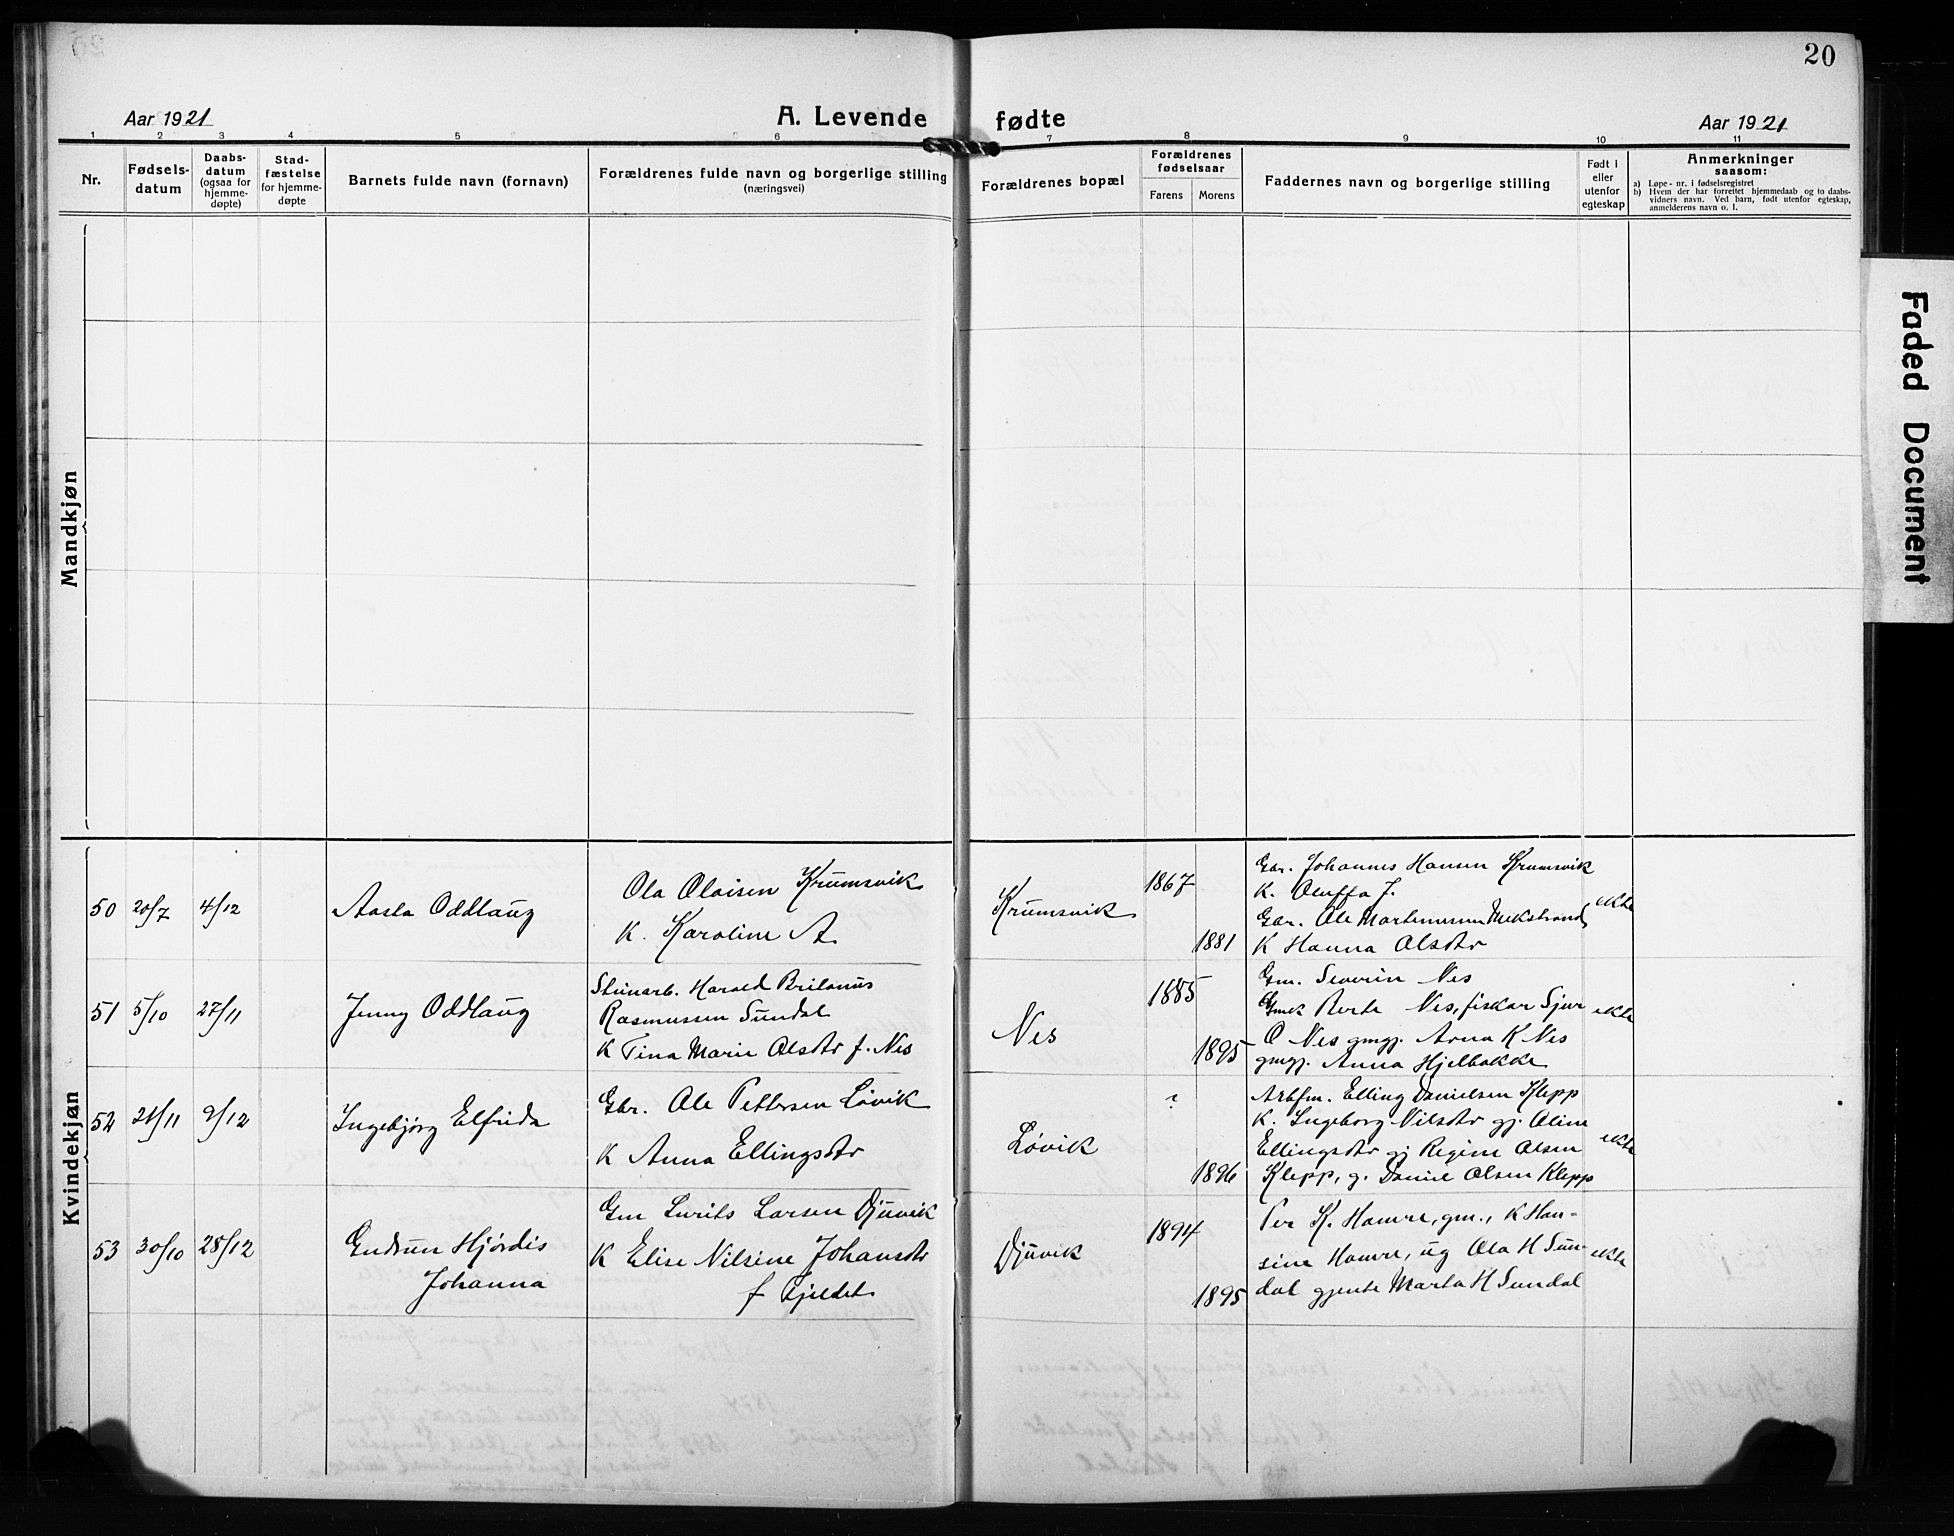 20
Aar 1921
A. Levende
fødte
Aar 1921
1 2 3 4 5 6 7 8 9 10 11
Nr.
Fødsels-
datum
Daabs-
datum
(ogsaa for
hjemme-
døpte)
Stad-
fæstelse
for hjemme-
døpte
Barnets fulde navn (fornavn)
Forældrenes fulde navn og borgerlige stilling
(næringsvei)
Forældrenes bopæl
Forældrenes
fødselsaar
Farens
Morens
Faddernes navn og borgerlige stilling
Født i
eller
utenfor
egteskap
Anmerkninger
saasom:
a) Løpe-nr. i fødselsregistret
b) Hvem der har forrettet hjemmedaab og to daabs-
vidners navn. Ved barn, født utenfor egteskap,
anmelderens navn o. l.
Mandkjøn
Kvindekjøn
50 20/7 4/12
Aasta Oddlaug
Ola Olaisen Krumsvik
K. Karoline A.
Krumsvik
1867
1881
Gbr. Johannes Hansen Krumsvik
K. Oluffa J.
Gbr. Ole Martinussen Mekstrand
K Hanna Olsdtr
ekte
51 5/10 27/11
Jenny Oddlaug
Stenarb. Harald Brilanus
Rasmussen Sundal
K Tina Marie Olsdtr f. Nes
Nes
1885
1895
Gm. Severin Nes
Gmk Berte Nes, fiskar Sjur
O Nes gmgj. Anna K Nes
gmgj. Anna Hjelbakke
ekte
52 21/11 9/12
Ingebjørg Elfrida
Gbr. Ole Pettersen Løvik
K Anna Ellingsdtr
Løvik
?
1896
Arbfm. Elling Danielsen Klepp
K. Ingeborg Nilsdtr gj. Oline
Ellingsdtr gj Regine Olsen
Klepp, g. Daniel Olsen Klepp
ekte
53 30/10 28/12
Gudrun Hjördis
Johanna
Gm Lurits Larsen Djuvik
K Elise Nilsine Johansdtr
f Fjeldet
Djuvik
1894
1895
Per K. Hamre, gm., K Han-
sine Hamre, ug Ola H Sun-
dal gjente Marta H Sundal
ekte
Faded Document